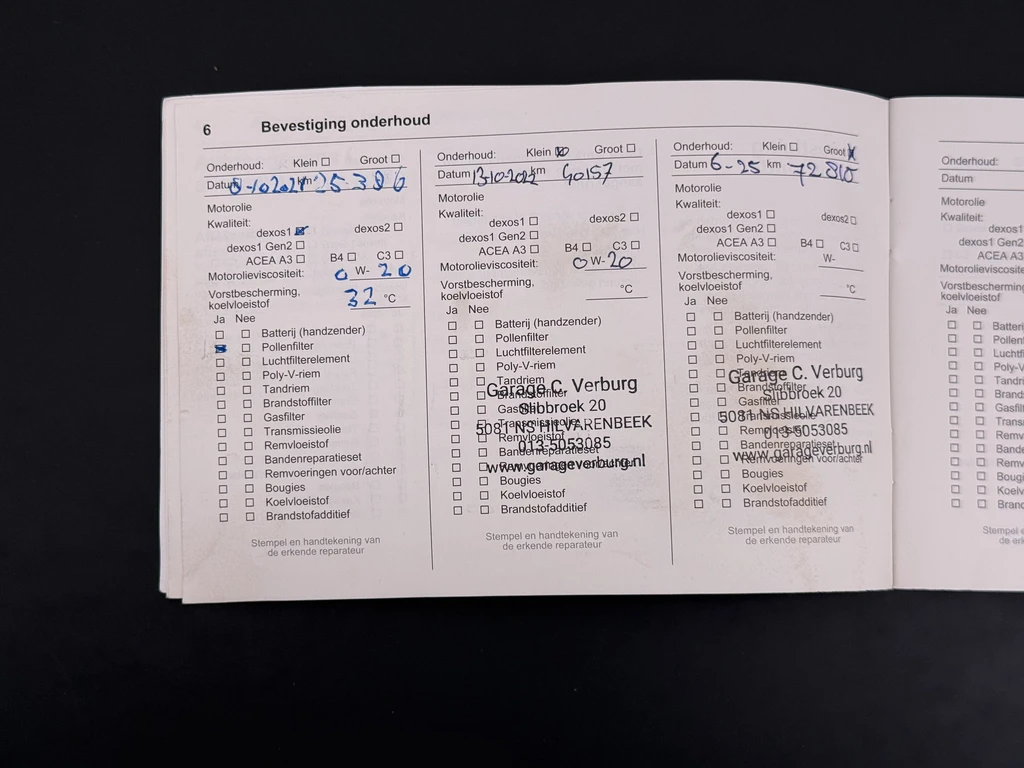 6 Bevestiging onderhoud
Onderhoud: Klein Groot
Datum km 25.386
Motorolie
Kwaliteit:
dexos1 dexos2
dexos1 Gen2
ACEA A3 B4 C3
Motorolieviscositeit: 0 W- 20
Vorstbescherming,
koelvloeistof 32 °C
Ja Nee
Batterij (handzender)
Pollenfilter
Luchtfilterelement
Poly-V-riem
Tandriem
Brandstoffilter
Gasfilter
Transmissieolie
Remvloeistof
Bandenreparatieset
Remvoeringen voor/achter
Bougies
Koelvloeistof
Brandstofadditief
Stempel en handtekening van
de erkende reparateur
Onderhoud: Klein Groot
Datum 13-10-2022 km 40157
Motorolie
Kwaliteit:
dexos1 dexos2
dexos1 Gen2
ACEA A3 B4 C3
Motorolieviscositeit: 0 W- 20
Vorstbescherming,
koelvloeistof °C
Ja Nee
Batterij (handzender)
Pollenfilter
Luchtfilterelement
Poly-V-riem
Tandriem
Garage C. Verburg
Brandstoffilter
Slibbroek 20
Gasfilter
Transmissieolie
5081 NS HILVARENBEEK
Remvloeistof
013-5053085
Bandenreparatieset
www.garageverburg.nl
Bougies
Koelvloeistof
Brandstofadditief
Stempel en handtekening van
de erkende reparateur
Onderhoud: Klein Groot
Datum 6-25 km
Motorolie
Kwaliteit:
dexos1 dexos2
dexos1 Gen2
ACEA A3 B4 C3
Motorolieviscositeit: W-
Vorstbescherming,
koelvloeistof °C
Ja Nee
Batterij (handzender)
Pollenfilter
Luchtfilterelement
Poly-V-riem
Tandriem
Garage C. Verburg
Brandstoffilter
Slibbroek 20
Gasfilter
Transmissieolie
5081 NS HILVARENBEEK
Remvloeistof
013-5053085
Bandenreparatieset
www.garageverburg.nl
Remvoeringen voor/achter
Bougies
Koelvloeistof
Brandstofadditief
Stempel en handtekening van
de erkende reparateur
Onderhoud:
Datum
Motorolie
Kwaliteit:
dexos1
dexos1 Gen2
ACEA A3
Motorolieviscositei
Vorstbescherming
koelvloeistof
Ja Nee